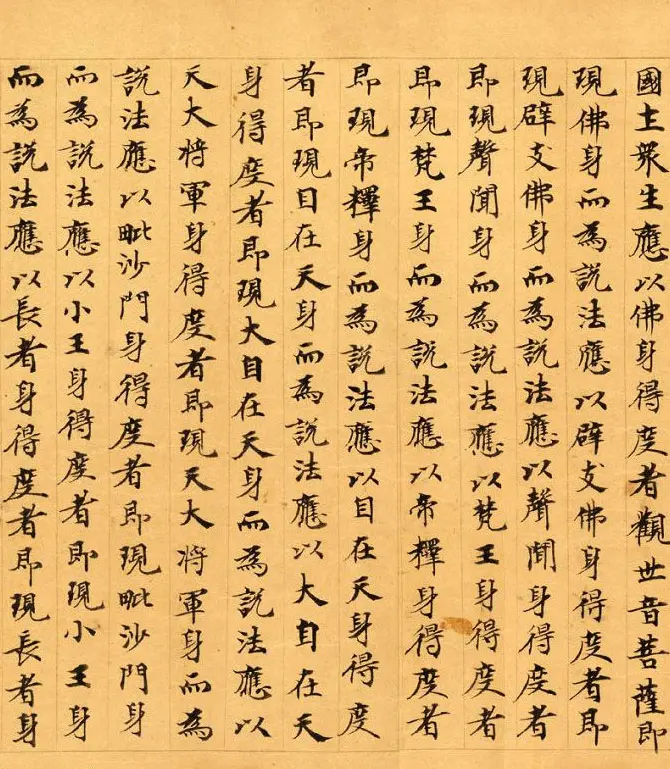 國土衆生應以佛身得度者觀世音菩薩即
現佛身而為說法應以辟支佛身得度者即
現辟支佛身而為說法應以聲聞身得度者
即現聲聞身而為說法應以梵王身得度者
即現梵王身而為說法應以帝釋身得度者
即現帝釋身而為說法應以自在天身得度
者即現自在天身而為說法應以大自在天
身得度者即現大自在天身而為說法應以
天大將軍身得度者即現天大將軍身而為
說法應以毗沙門身得度者即現毗沙門身
而為說法應以小王身得度者即現小王身
而為說法應以長者身得度者即現長者身